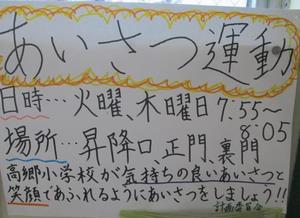 あいさつ運動
日時…火曜、木曜日7:55〜8:05
場所…昇降口、正門、裏門
高郷小学校が気持ちの良いあいさつと
笑顔であふれるようにあいさつをしましょう!!
計画委員会